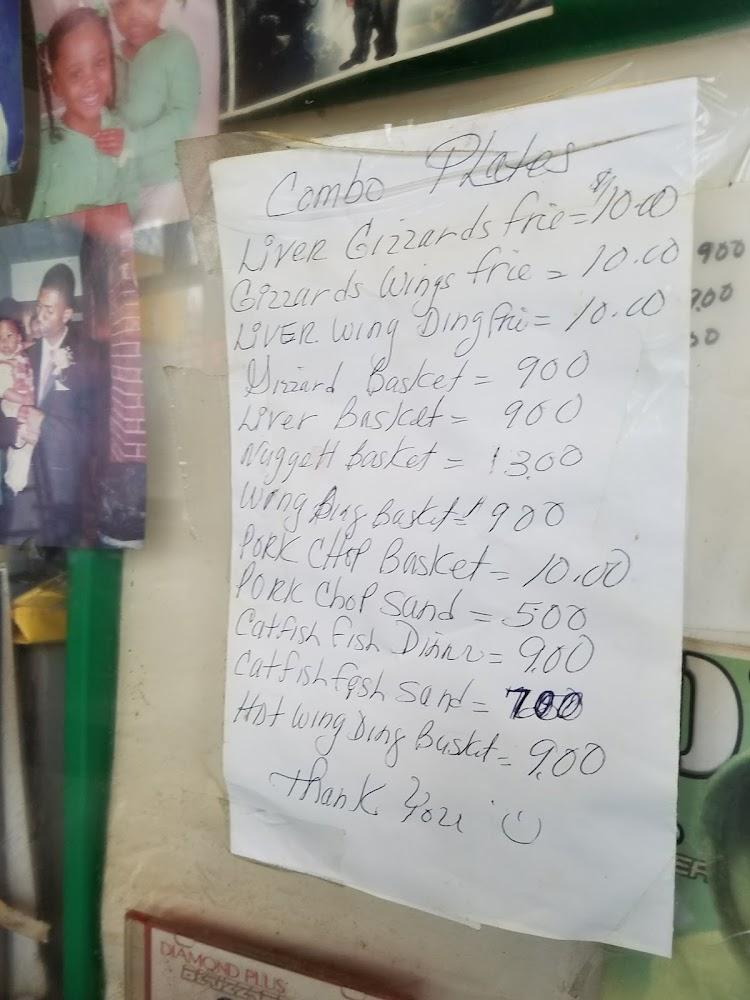 Combo Plates
Liver Gizzards frie = $10.00
Gizzards Wings frie = 10.00
LIVER Wing Ding fri = 10.00
Gizzard Basket = 900
Liver Basket = 900
Nuggett Basket = 13.00
Wing Ding Basket = 900
PORK CHOP Basket = 10.00
PORK Chop Sand = 500
Catfish fish Dinnr = 9.00
Catfish fish Sand = 700
Hot Wing Ding Basket = 9.00
Thank You
900
DIAMOND PLUS